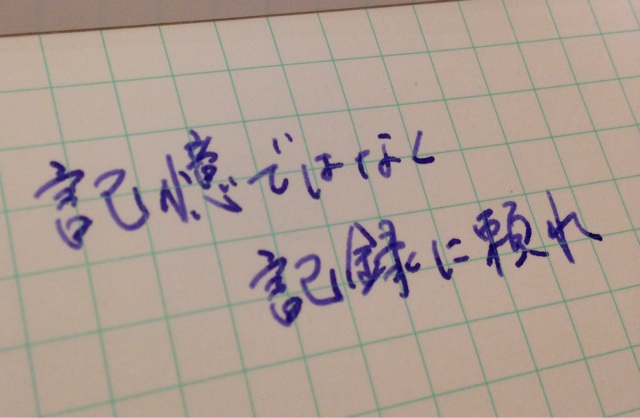 記憶ではなく
記録に頼れ